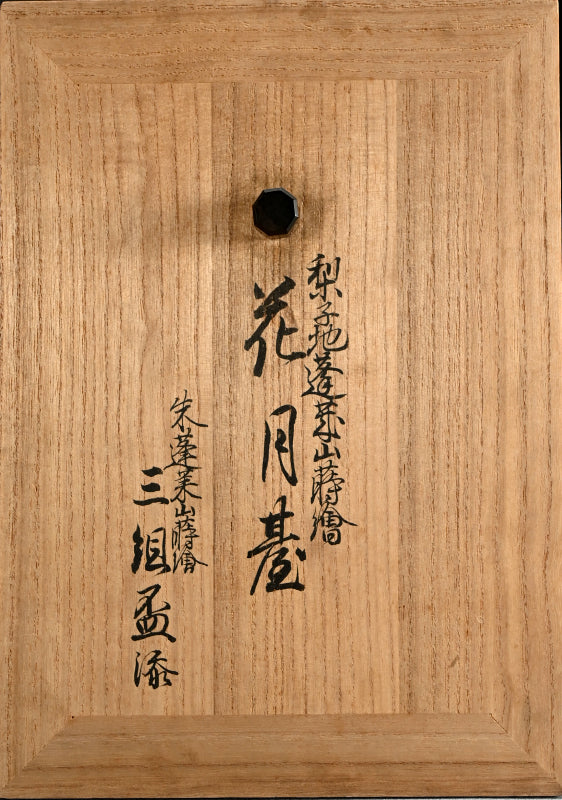 梨子地蓬莱山蒔繪
花月臺
朱蓬莱山蒔繪
三組盃添